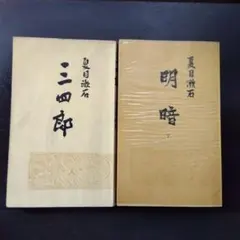 夏目漱石
三四郎
夏目漱石
明暗
下